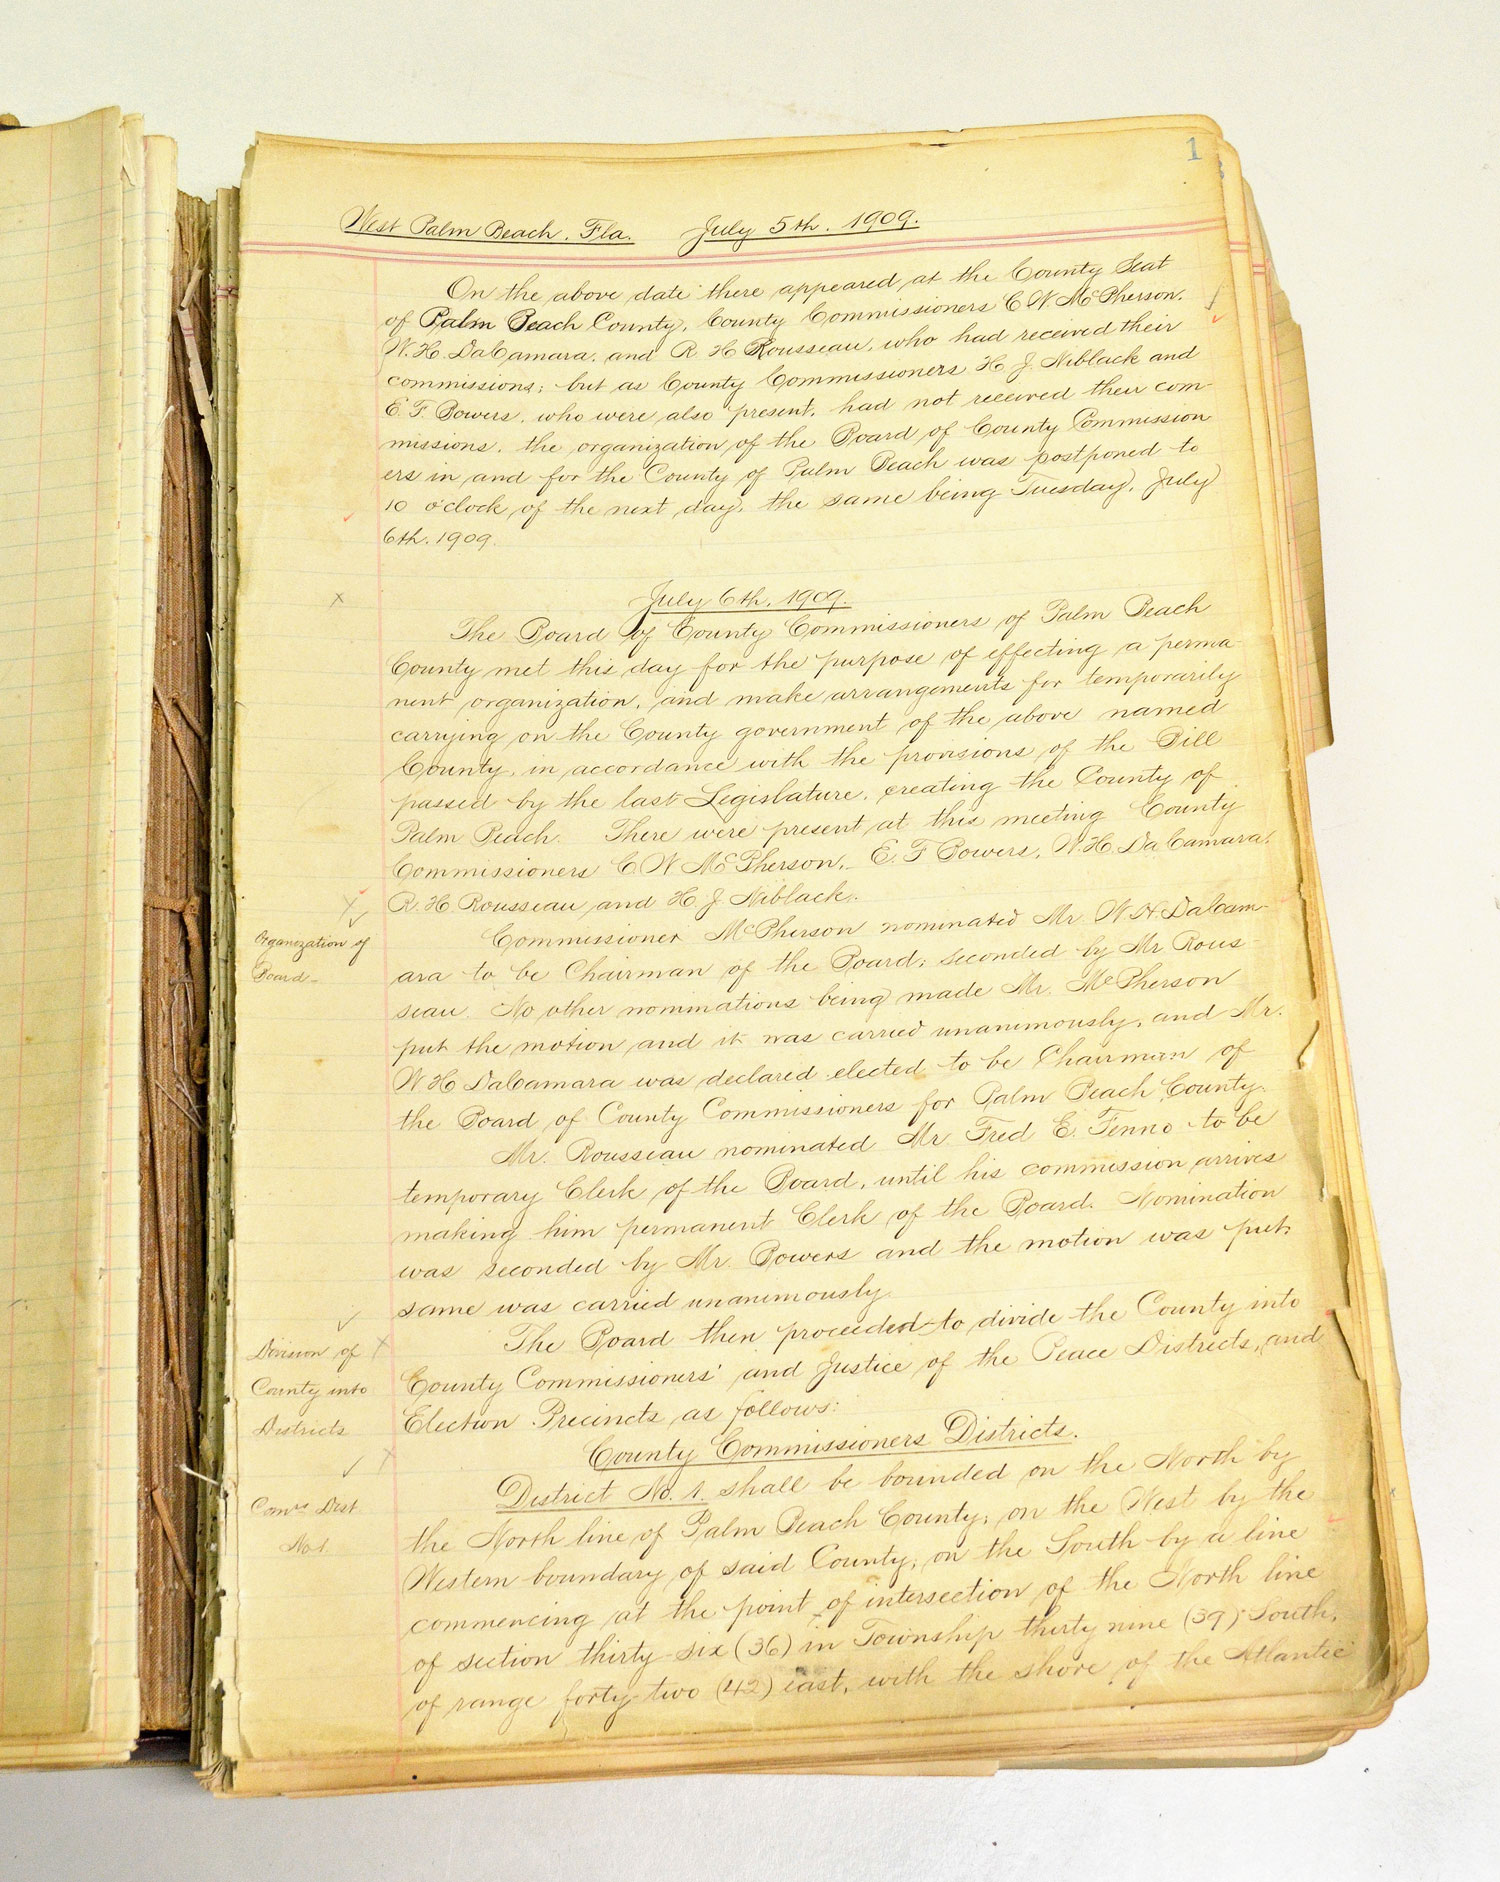 1
West Palm Beach. Fla. July 5th. 1909.
On the above date there appeared at the County Seat
of Palm Beach County, County Commissioners C W. McPherson.
W. H. DaCamara. and R. H Rousseau, who had received their
commissions; but as County Commissioners H. J. Niblack and
E. F. Powers, who were also present, had not received their com-
missions, the organization of the Board of County Commission
ers in and for the County of Palm Beach was postponed to
10 o'clock of the next day, the same being Tuesday, July
6th. 1909.
July 6th. 1909.
The Board of County Commissioners of Palm Beach
County met this day for the purpose of effecting a perma-
nent organization, and make arrangements for temporarily
carrying on the County government of the above named
County, in accordance with the provisions of the Bill
passed by the last Legislature, creating the County of
Palm Beach. There were present at this meeting County
Commissioners C W McPherson, E. F Powers, W. H. DaCamara,
R. H Rousseau and H. J Niblack.
Organization of
Board-
Commissioner McPherson nominated Mr. W. H. DaCam-
ara to be Chairman of the Board; seconded by Mr Rous-
seau. No other nominations being made Mr. McPherson
put the motion and it was carried unanimously, and Mr.
W H DaCamara was declared elected to be Chairman of
the Board of County Commissioners for Palm Beach County.
Mr. Rousseau nominated Mr. Fred E. Fenno to be
temporary Clerk of the Board, until his commission arrives
making him permanent Clerk of the Board. Nomination
was seconded by Mr. Powers and the motion was put,
same was carried unanimously.
Division of
County into
Districts
The Board then proceeded to divide the County into
County Commissioners' and Justice of the Peace Districts, and
Election Precincts as follows:
County Commissioners Districts.
Comrs Dist.
No 1.
District No. 1. shall be bounded on the North by
the North line of Palm Beach County; on the West by the
Western boundary of said County; on the South by a line
commencing at the point of intersection of the North line
of section thirty-six (36) in Township thirty nine (39) South,
of range forty-two (42) east, with the shore of the Atlantic